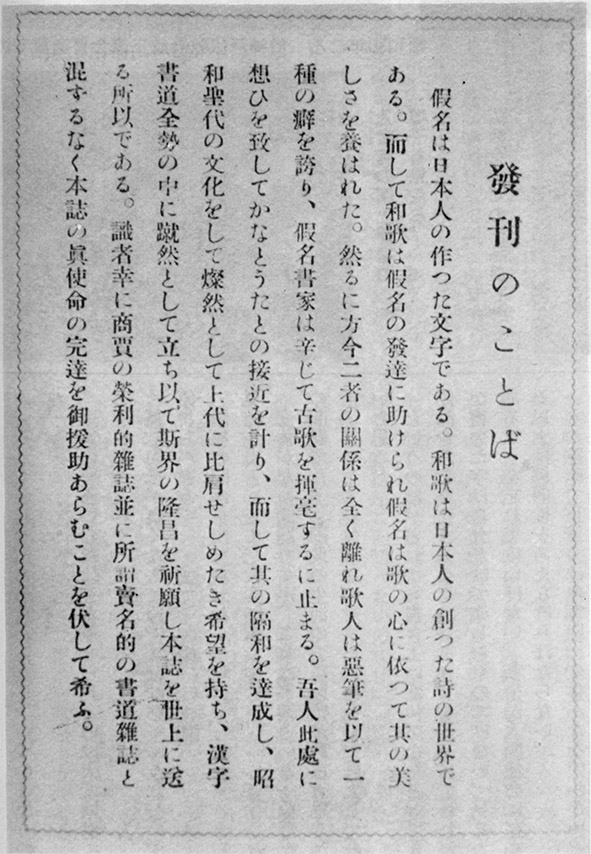 發刊のことば
假名は日本人の作つた文字である。和歌は日本人の創つた詩の世界で
ある。而して和歌は假名の發達に助けられ假名は歌の心に依つて其の美
しさを養はれた。然るに方今二者の關係は全く離れ歌人は惡筆を以て一
種の癖を誇り、假名書家は辛じて古歌を揮毫するに止まる。吾人此處に
想ひを致してかなとうたとの接近を計り、而して其の隔和を達成し、昭
和聖代の文化をして燦然として上代に比肩せしめたき希望を持ち、漢字
書道全勢の中に蹴然として立ち以て斯界の隆昌を祈願し本誌を世上に送
る所以である。識者幸に商賈の榮利的雜誌並に所謂賣名的の書道雜誌と
混ずるなく本誌の眞使命の完達を御援助あらむことを伏して希ふ。